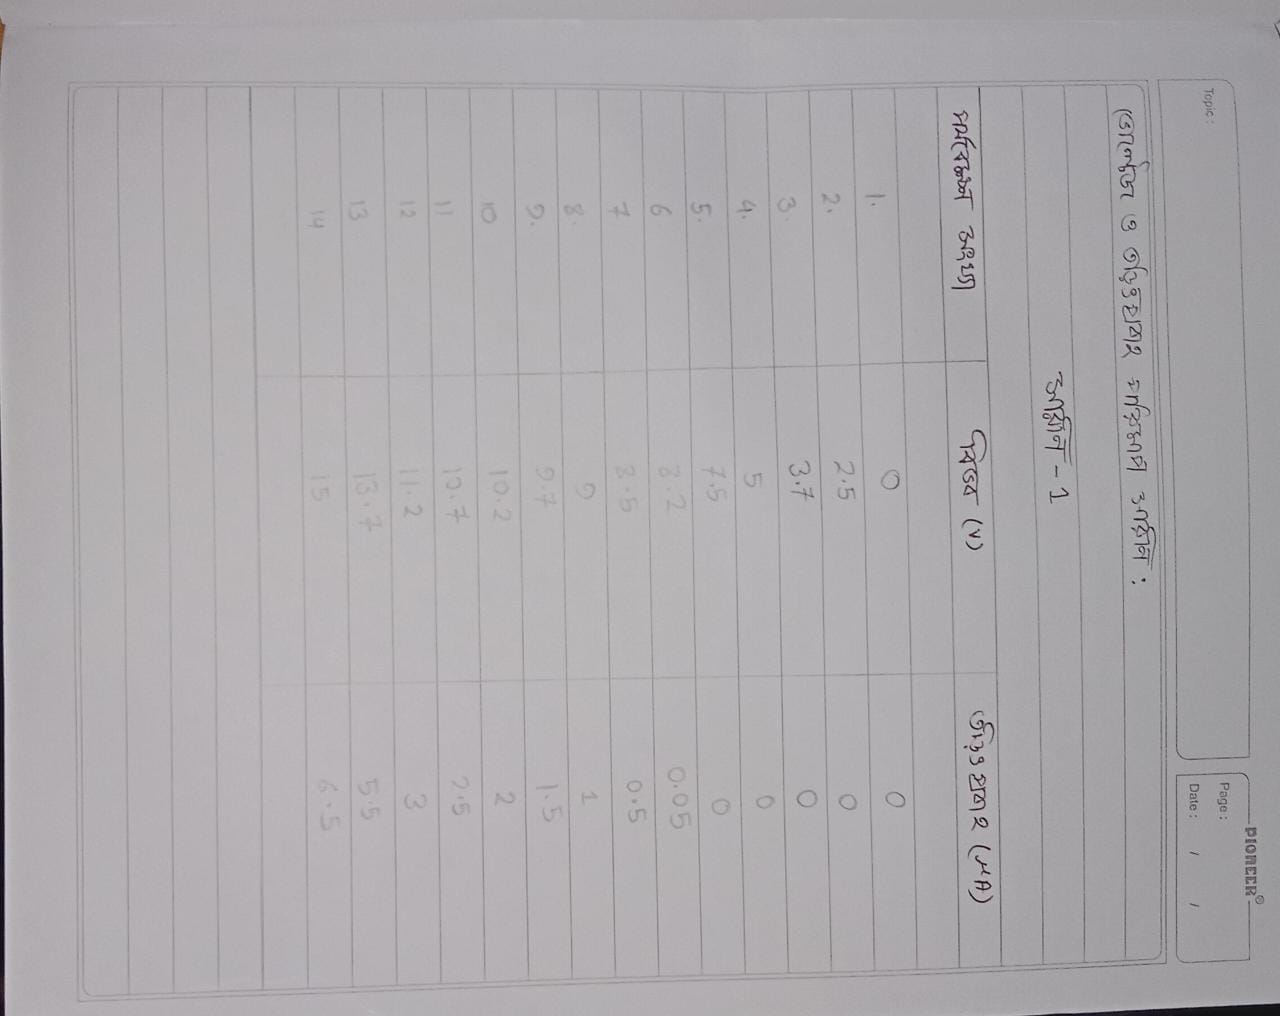 PIONEER®
Topic :
Page :
Date : / /
ভোল্টেজ ও তড়িৎপ্রবাহ পরিমাপ সারনি :
সারনি - 1
পর্যবেক্ষণ সংখ্যা বিভব (V) তড়িৎ প্রবাহ (μA)
1. 0 0
2. 2.5 0
3. 3.7 0
4. 5 0
5. 7.5 0
6 8.2 0.05
7 8.5 0.5
8. 9 1
9. 9.7 1.5
10 10.2 2
11 10.7 2.5
12 11.2 3
13 13.7 5.5
14 15 6.5